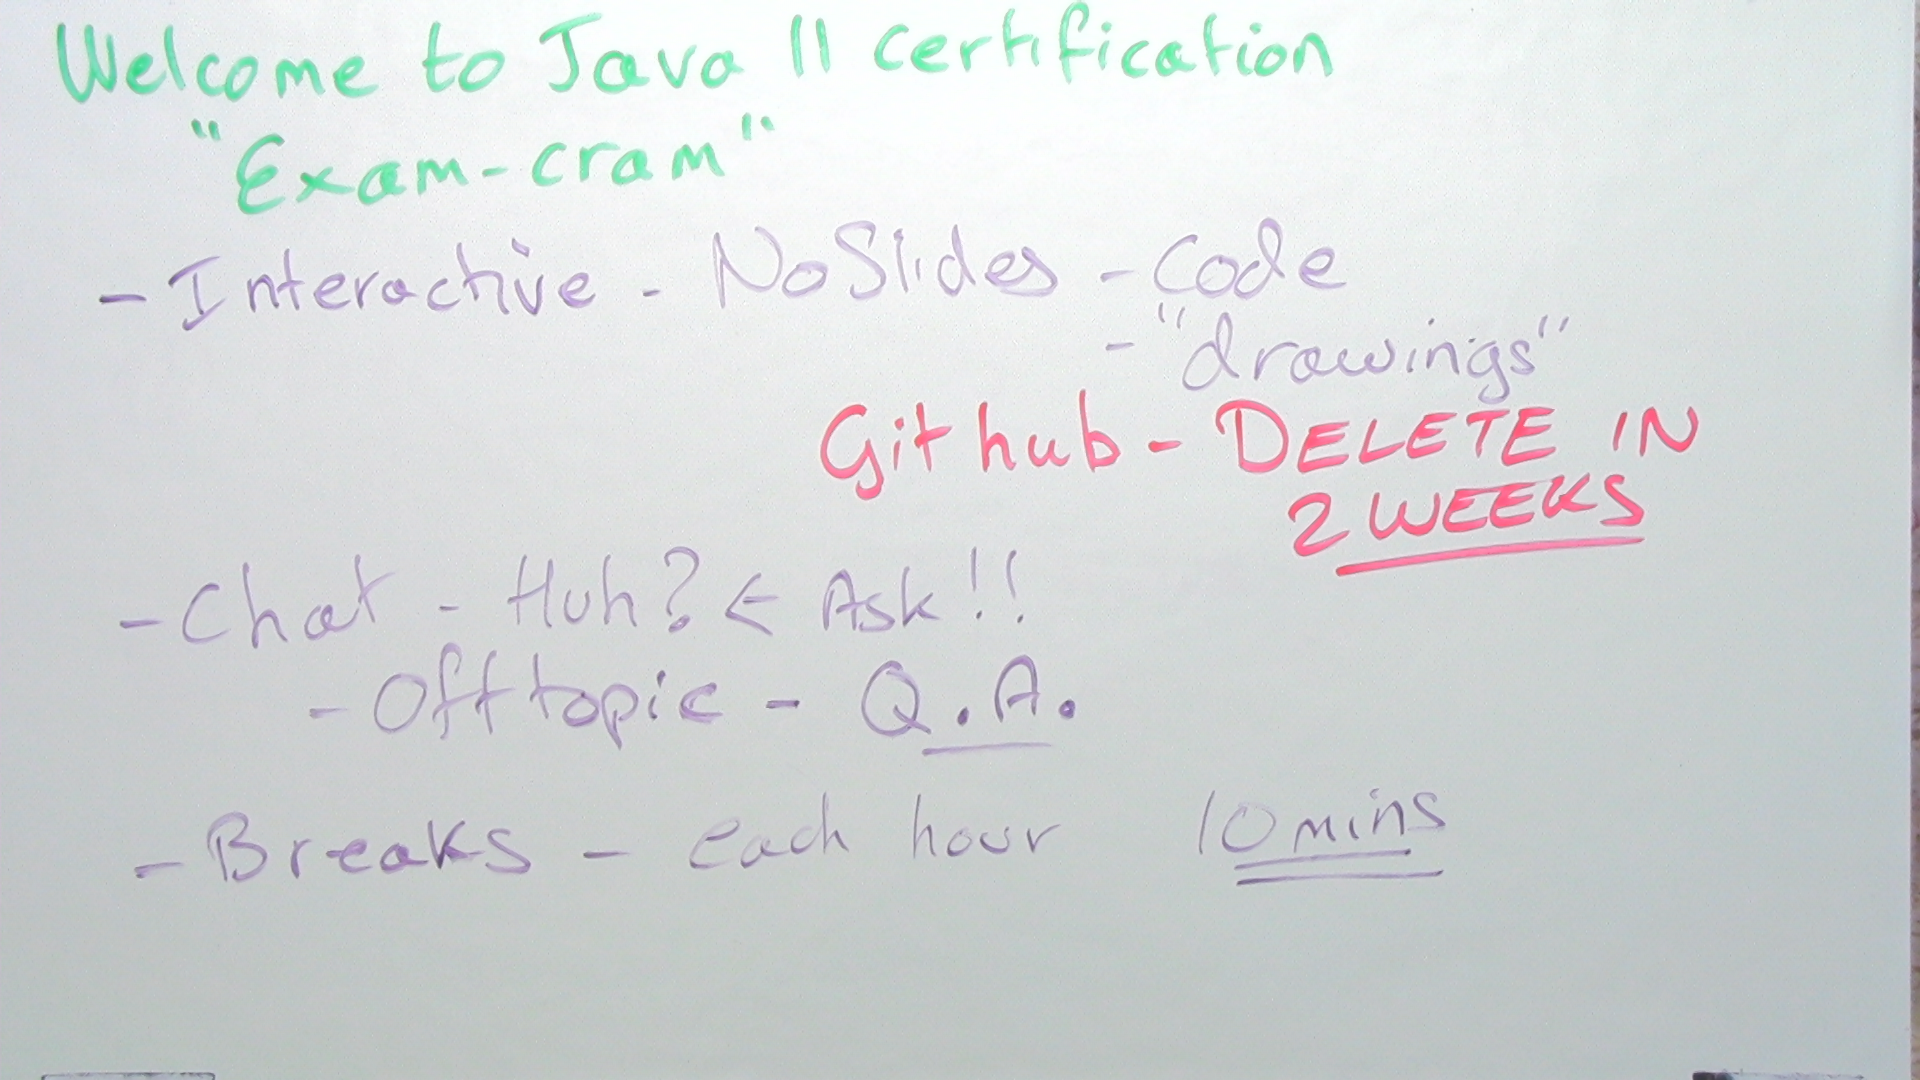 Welcome to Java 11 certification
"Exam-cram"
- Interactive - No Slides - Code
- "drawings"
Github - DELETE IN
2 WEEKS
- Chat - Huh? ← Ask!!
- Off topic - Q.A.
- Breaks - each hour 10 mins